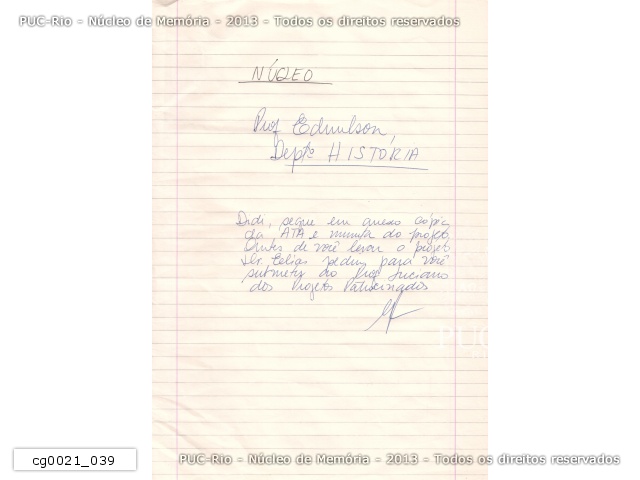 PUC-Rio - Núcleo de Memória - 2013 - Todos os direitos reservados
NÚCLEO
Prof Edmilson,
Deptº HISTÓRIA
segue em anexo cópia
da ATA e minuta do projeto.
Antes de você levar o projeto
pediu para você
submeter ao Prof Luciano
dos Projetos Patrocinados
PUC
cg0021_039
PUC-Rio - Núcleo de Memória - 2013 - Todos os direitos reservados